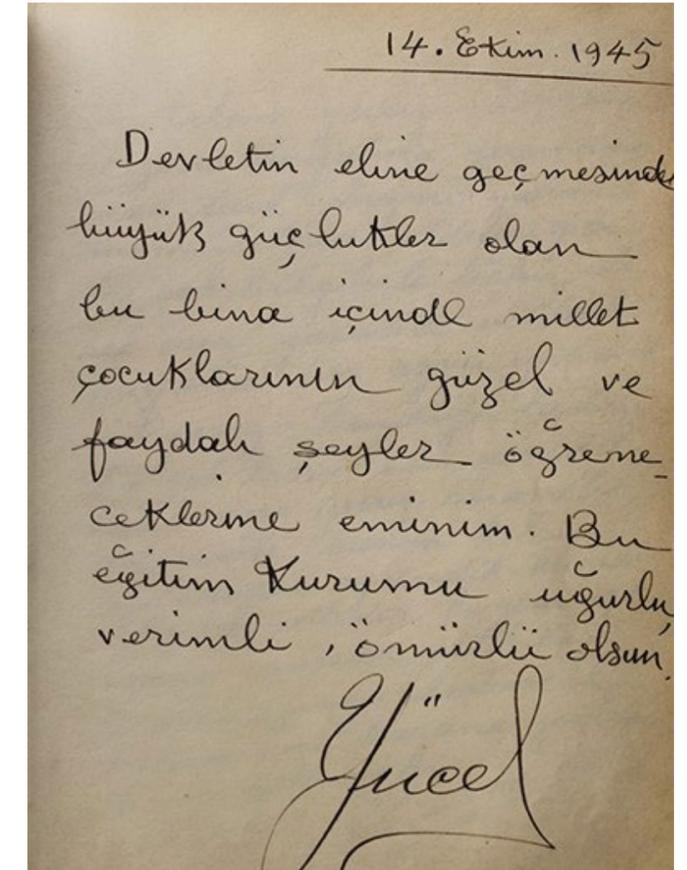 14. Ekim. 1945
Devletin eline geçmesinde
büyük güçlükler olan
bu bina içinde millet
çocuklarının güzel ve
faydalı şeyler öğrene_
ceklerine eminim. Bu
eğitim Kurumu uğurlu,
verimli, ömürlü olsun.
Yücel